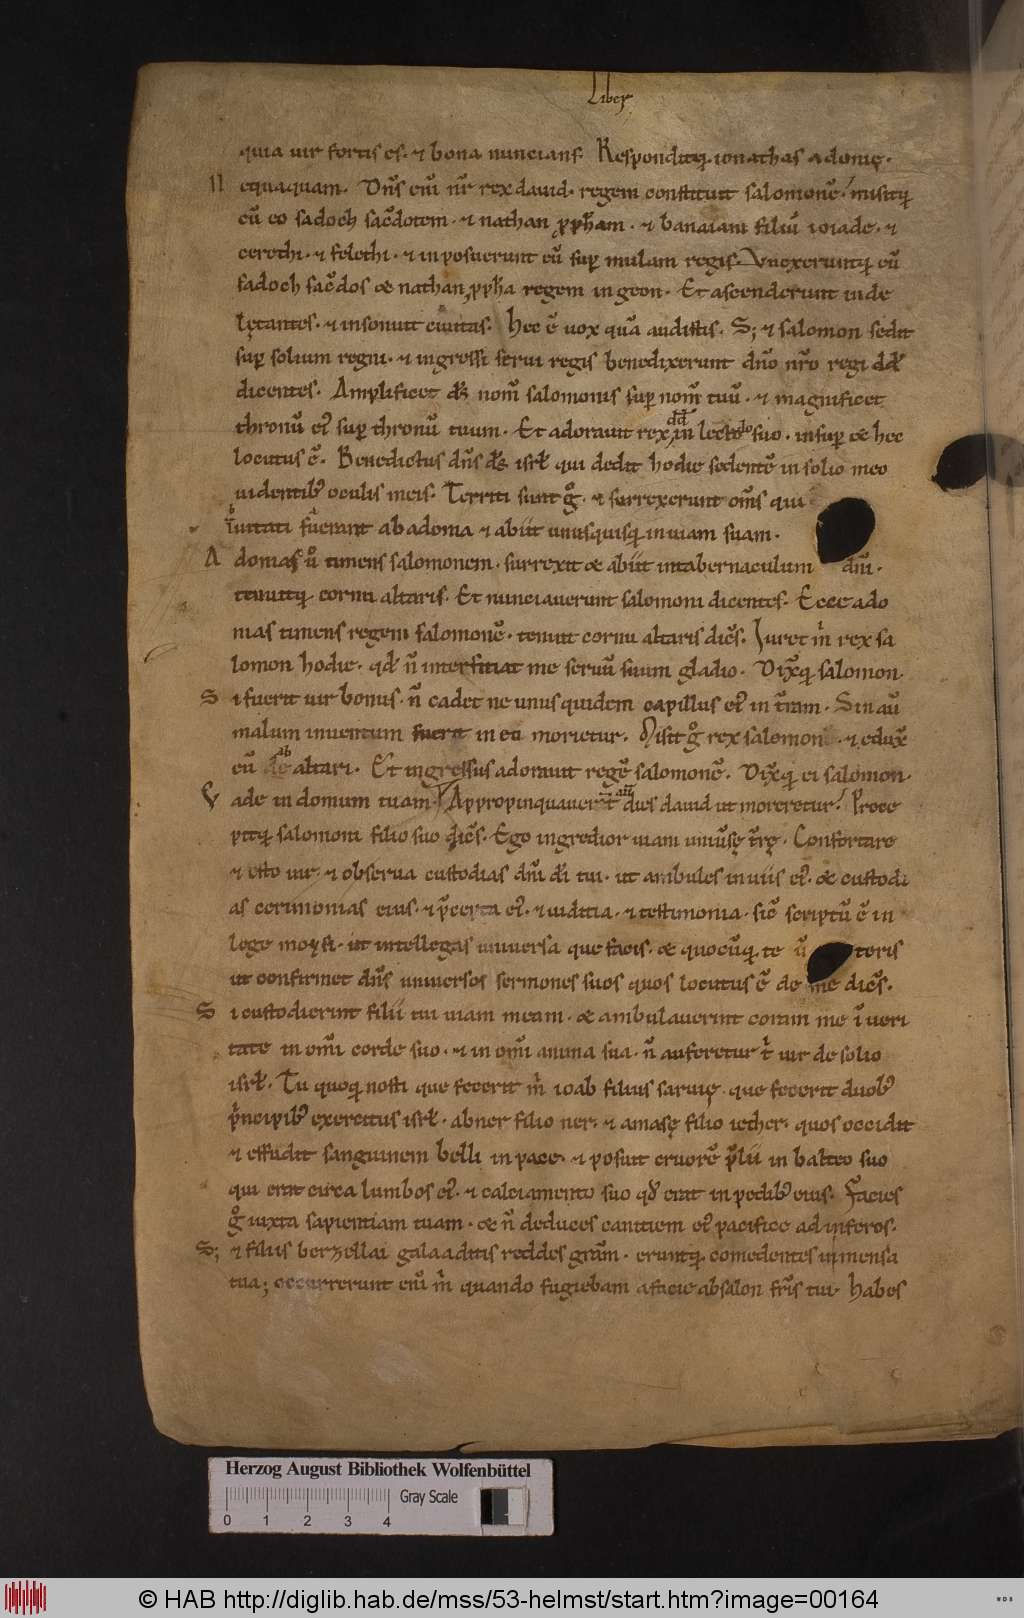 Liber
quia uir fortis es · ⁊ bona nuncians. Responditq; ionathas adonię ·
N equaquam. Dn̄s em̄ nr̄ rex dauid · regem constituit salomonē. misitq;
cū eo sadoch sac̄dotem · ⁊ nathan ꝓph̄am · ⁊ banaiam filiū ioiade · ⁊
cerethi · ⁊ felethi · ⁊ inposuerunt eū sup̄ mulam regis. Vnxeruntq; eū
sadoch sac̄dos & nathan ꝓph̄a regem in geon · Et ascenderunt inde
lętantes · ⁊ insonuit ciuitas. Hec ē uox quā audistis. S; ⁊ salomon sedit
sup̄ solium regni · ⁊ ingressi serui regis benedixerunt dn̄o nr̄o regi dd̄
dicentes. Amplificet ds̄ nom̄ salomonis sup̄ nom̄ tuū · ⁊ magnificet
thronū ei᷒ sup̄ thronū tuum · Et adorauit rex dd̄ in lecto lo suo · insup̄ & hec
locutus ē. Benedictus dn̄s ds̄ isrl̄ qui dedit hodie sedentē in solio meo
uidentib᷒ oculis meis. Territi sunt gͦ · ⁊ surrexerunt om̄s qui
īuitati fuerant ab adonia ⁊ abiit unusquisq; in uiam suam ·
A donias ů timens salomonem · surrexit & abiit intabernaculum dn̄i ·
tenuitq; cornu altaris. Et nunciauerunt salomoni dicentes. Ecce ado
nias timens regem salomonē · tenuit cornu altaris dic̄s. Iuret m̄ rex sa
lomon hodie · qd̄ n̄ interfitiat me seruū suum gladio. Dix̄q; salomon.
S i fuerit uir bonus · n̄ cadet ne unus quidem capillus ei᷒ in t̄ram · Sin aū
malum inuentum fuerit in eo morietur. Misit gͦ rex salomon · ⁊ edux̄
eū de ab altari. Et ingressus adorauit regē salomonē. Dix̄q; ei salomon ·
V ade in domum tuam. Appropinquauer̄t aūt dies dauid ut moreretur. Prece
pitq; salomoni filio suo dic̄s. Ego ingredior uiam uniūsę t̄rę · Confortare
⁊ esto uir · ⁊ obserua custodias dn̄i dī tui · ut ambules in uiis ei᷒ · & custodi
as cerimonias eius · ⁊ p̄cepta ei᷒ · ⁊ iuditia · ⁊ testimonia · sic̄ scriptū ē in
lege moysi · ut intellegas uniuersa que facis · & quocūq; te ū teris
ut confirmet dn̄s uniuersos sermones suos quos locutus ē de me dic̄s.
S i custodierint filii tui uiam meam · & ambulauerint coram me ī ueri
tate in om̄i corde suo · ⁊ in om̄i anima sua · n̄ auferetur t̄ uir de solio
isrl̄. Tu quoq; nosti que fecerit m̄ ioab filius saruię · que fecerit duob᷒
p̄ncipib᷒ exercitus isrl̄ · abner filio ner · ⁊ amasę filio iether · quos occidit
⁊ effudit sanguinem belli in pace · ⁊ posuit cruorē p̄lii in balteo suo
qui erat circa lumbos ei᷒ · ⁊ calciamento suo qd̄ erat in pedib᷒ eius. Facies
gͦ iuxta sapientiam tuam · & n̄ deduces canitiem ei᷒ pacifice ad inferos.
S; ⁊ filiis berzellai galaaditis reddes grām · eruntq; comedentes in mensa
tua; occurrerunt em̄ m̄ quando fugiebam a facie absalon fr̄is tui · Habes
Herzog August Bibliothek Wolfenbüttel
Gray Scale
0 1 2 3 4
© HAB http://diglib.hab.de/mss/53-helmst/start.htm?image=00164